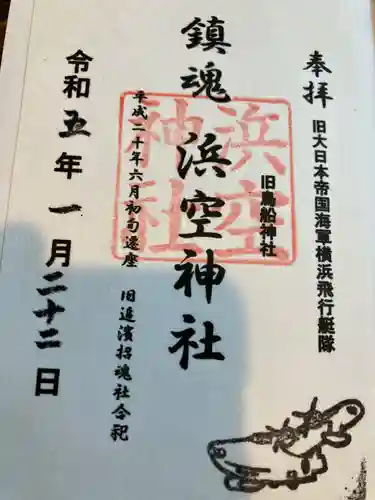 奉拝
旧大日本帝国海軍横浜飛行艇隊
旧鳥船神社
鎮魂 浜空神社
浜空神社
平成二十年六月初旬遷座 旧追濱招魂社合祀
令和五年一月二十二日